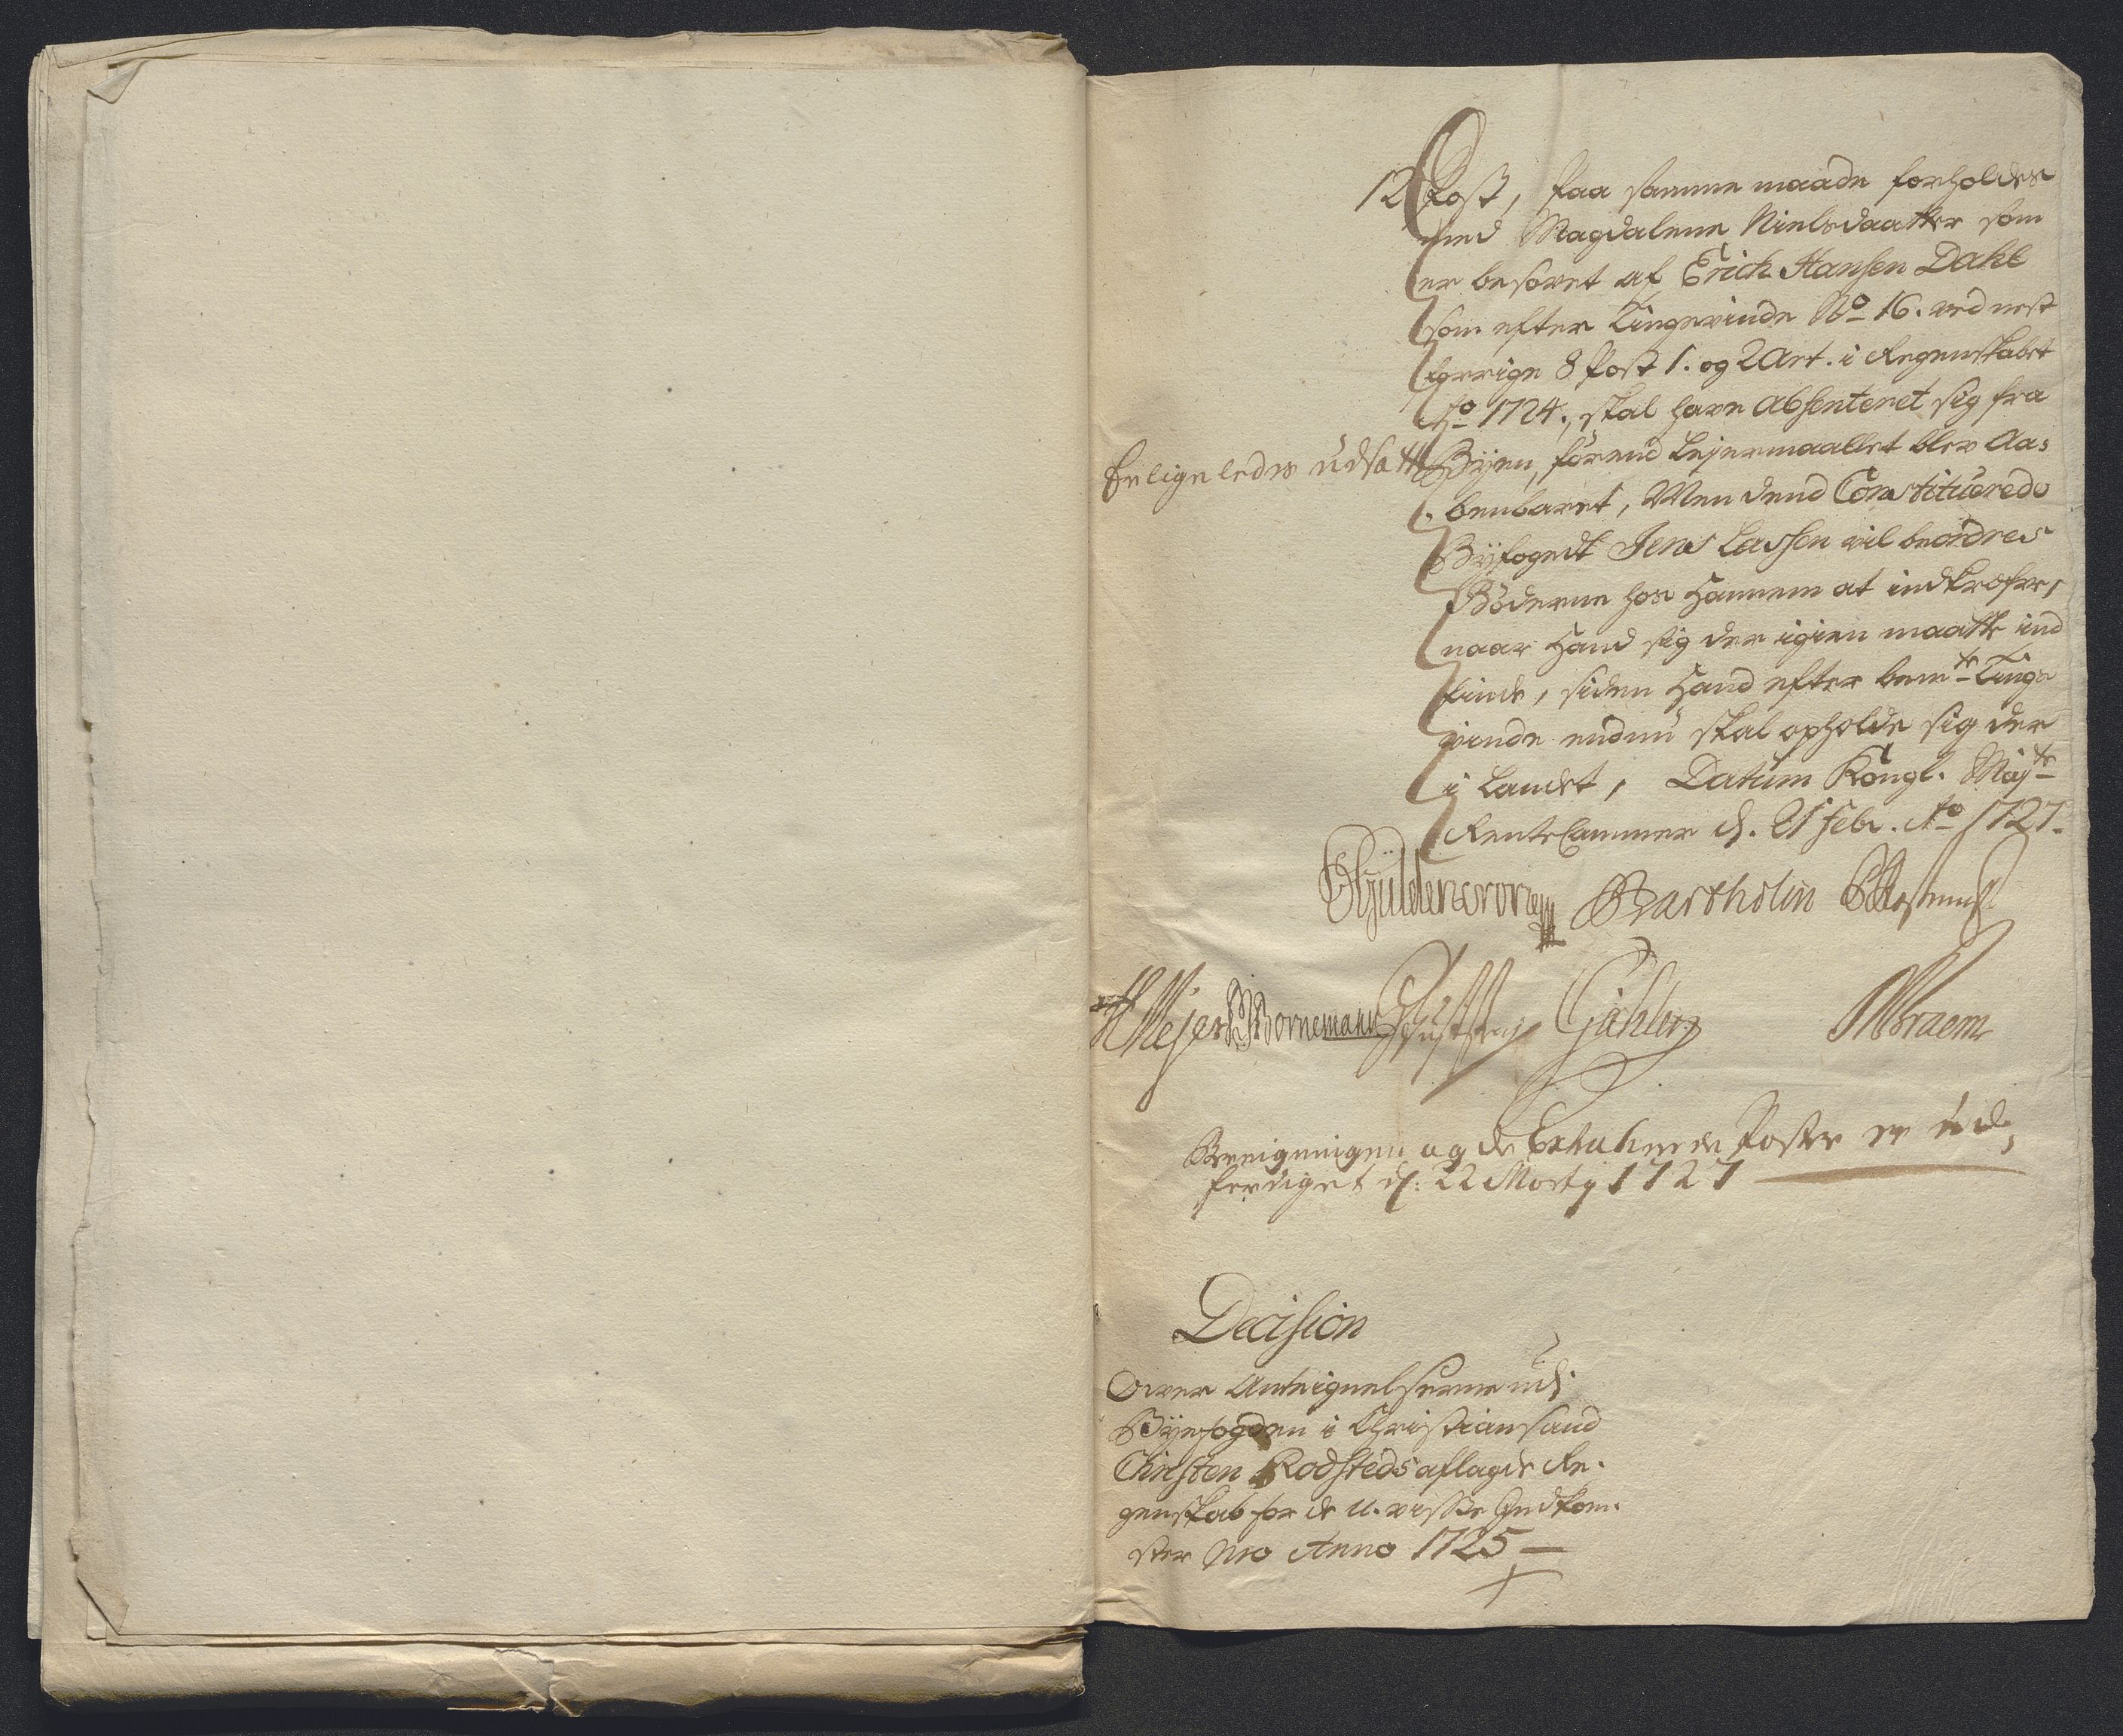 12 Post, Paa samme maade forholdes
med Magdalene Nielsdaatter som
er besovet af Erich Hansen Dahl
som efter Tingsvinde No 16. ved nest
forrige 8 Post 1. og 2 Art. i Regenskabet
Ao 1724., skal have Absenteret sig fra
Byen, förend Lejermaallet blev Aa-
benbaret, Men dend Constituerede
Byfogedt Jens Lassen vil beordres
Böderne hos Hannem at indkrefve,
naar Hand sig der igien maatte ind
finde, siden Hand efter bemte Tings
vinde endnu skal opholde sig der
i Landet, Datum Kongl. Majts
Rente Cammer d. 21 Febr. Ao 1727.
Erligeledes udsatt
Gÿldencrone Bartholin
Mejer Bornemann Gähler Braem
de Extraherede Poster er ud-
ferdiget d: 22 Marty 1727
Decision
Over Anteignelserne udj
Byefogden i Christiansand
Christen Rodsteds aflagde Re-
genskab for de u-visse Indkom-
ster pro Anno 1725